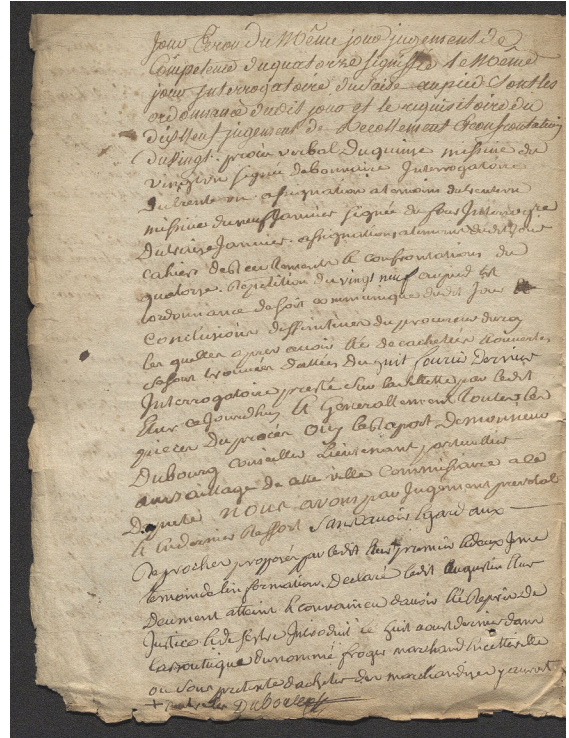 jour Erou du Même jour jugement de
Competence du quatorze signifié le Même
jour jnterrogatoire dudit au pied sont les
ordonnance dudit jour et le requisitoire du
dixneuf jugement de Recollement & confrontation
du vingt. procix verbal du quinze missive du
signée debonnaire Interrogatoire
du trente un assignation a temoins du trente un
missive du neuf Janvier signée
du treize Janvier. assignations a temoins dudit jour
cahier des Recollements & confrontations du
quatorze. Repetition du vingt neuf au pied est
lordonnance de soit communiqué dudit jour &
Conclusions diffinitives du procureur du roy
les quelles apres avoir été decachetées & ouvertes
se sont trouvées dattées du huit fevrier dernier
Interrogatoire presté sur la sellette par ledit
heur cejourdhuy & Generallement toutes les
pieces du procés ouy le raport de monsieur
Dubourg conseiller Lieutenant particulier
au Bailliage de cette ville Commissaire a ce
Deputé nous avons par Jugement prevotal
& en dernier Ressort sans avoir egard aux
Reproches proposés par ledit heur premier & deux jeme
temoin de linformation. Declaré ledit Augustin heur
Deuement atteint & convaincu davoir été Repris de
Justice & de sestre Introduit le huit aoust dernier dans
la boutique du nommé froger marchand
ou sous pretexte dacheter des marchandises y auroit
Dubourg